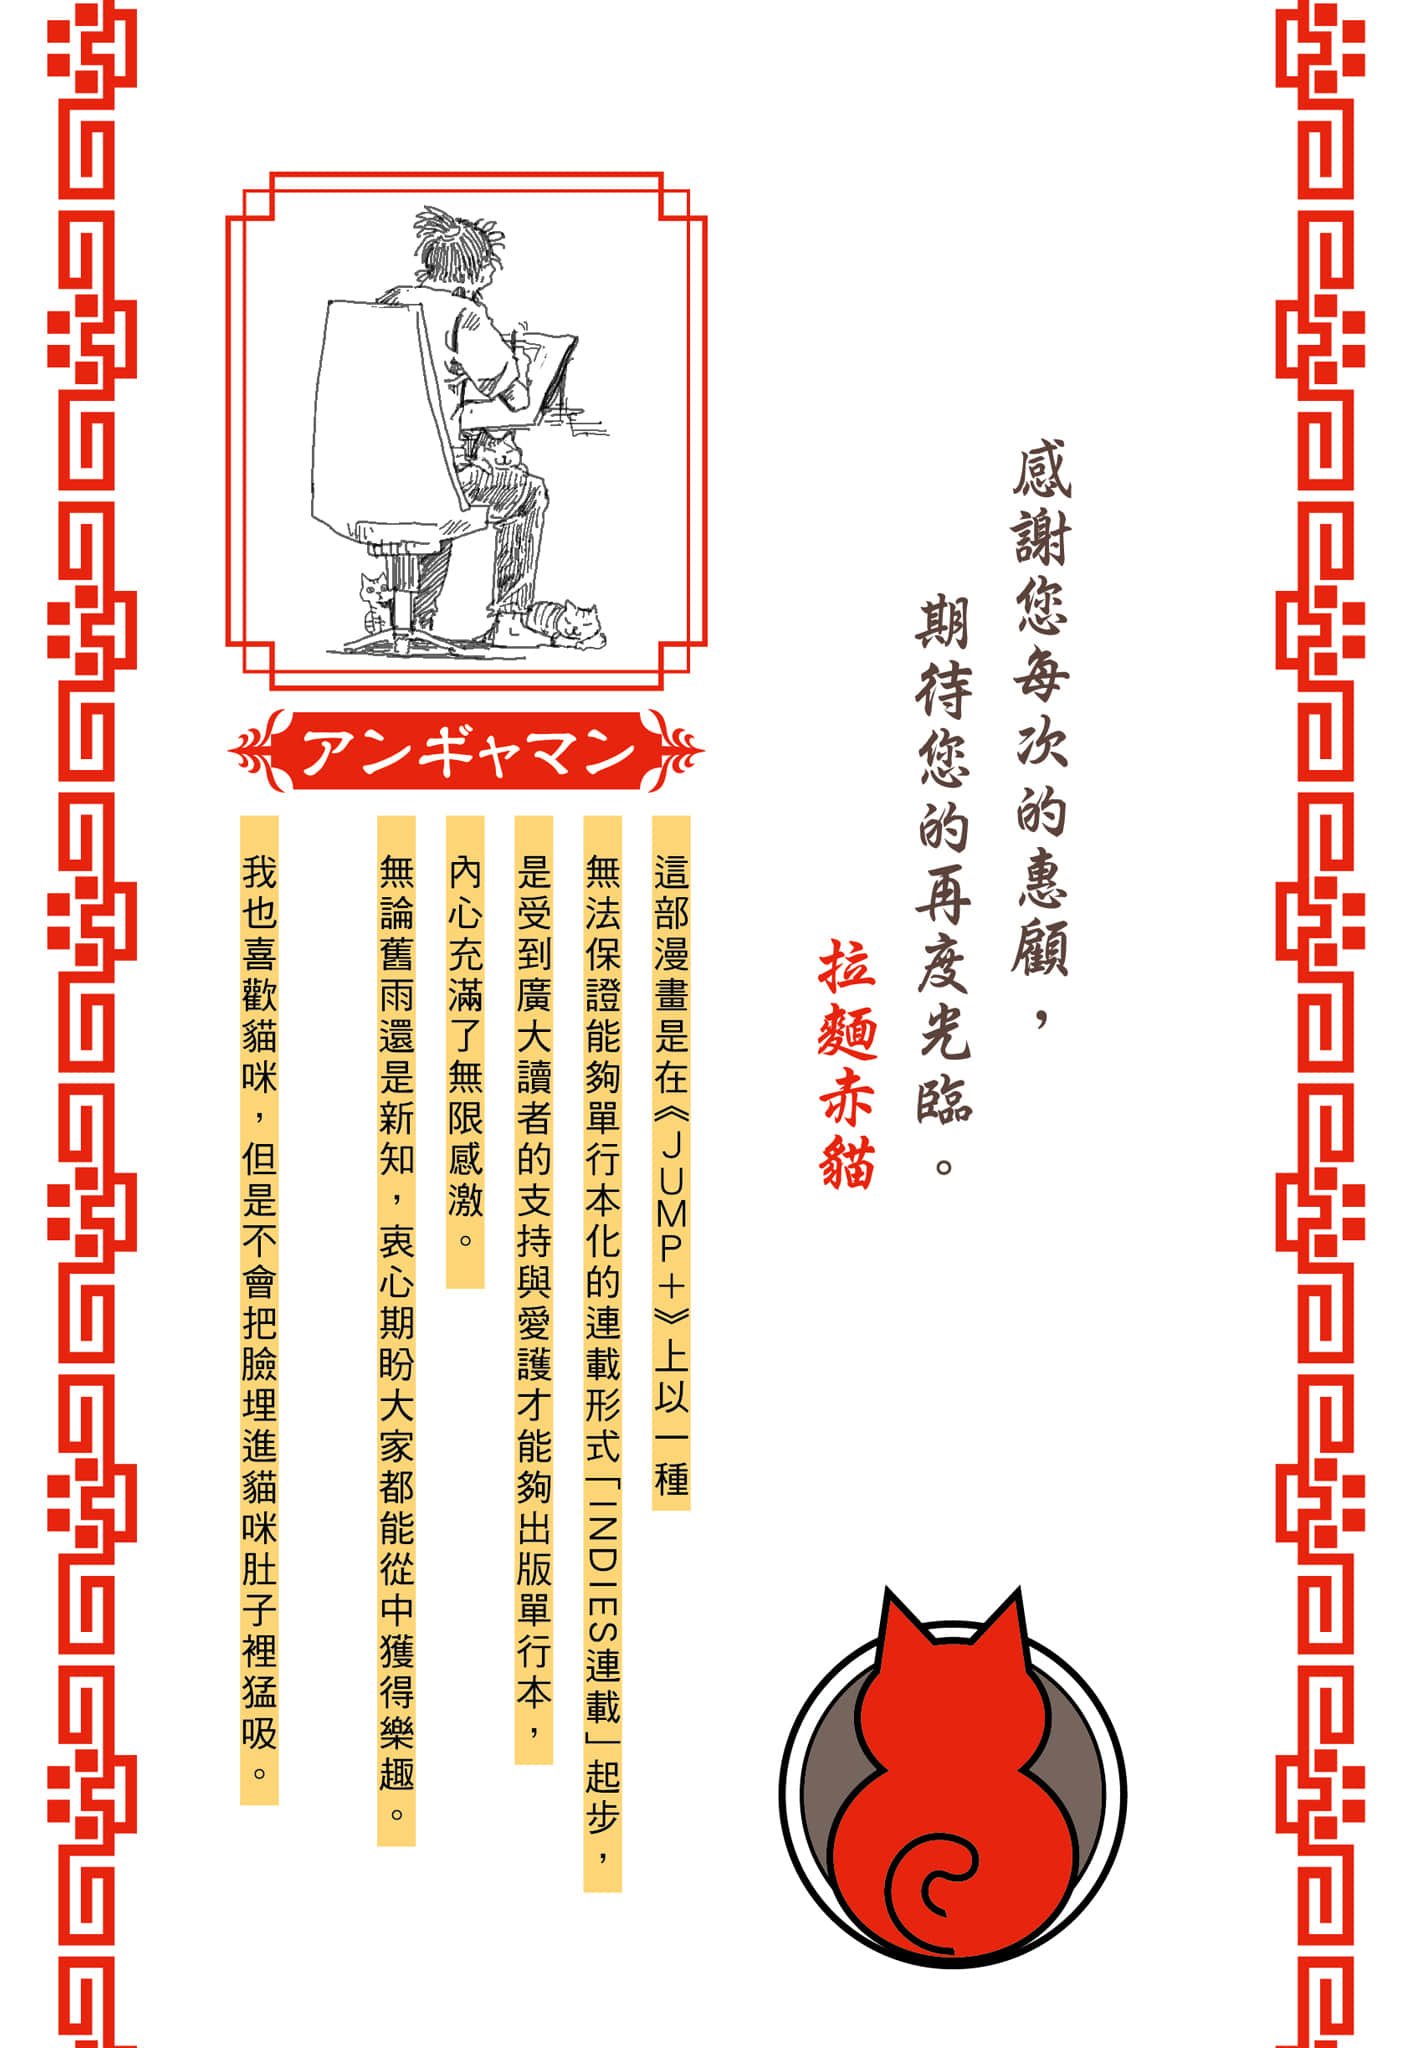 感謝您每次的惠顧，
期待您的再度光臨。
拉麵赤貓
アンギャマン
這部漫畫是在《ＪＵＭＰ＋》上以一種
無法保證能夠單行本化的連載形式「INDIES連載」起步，
是受到廣大讀者的支持與愛護才能夠出版單行本，
內心充滿了無限感激。
無論舊雨還是新知，衷心期盼大家都能從中獲得樂趣。
我也喜歡貓咪，但是不會把臉埋進貓咪肚子裡猛吸。